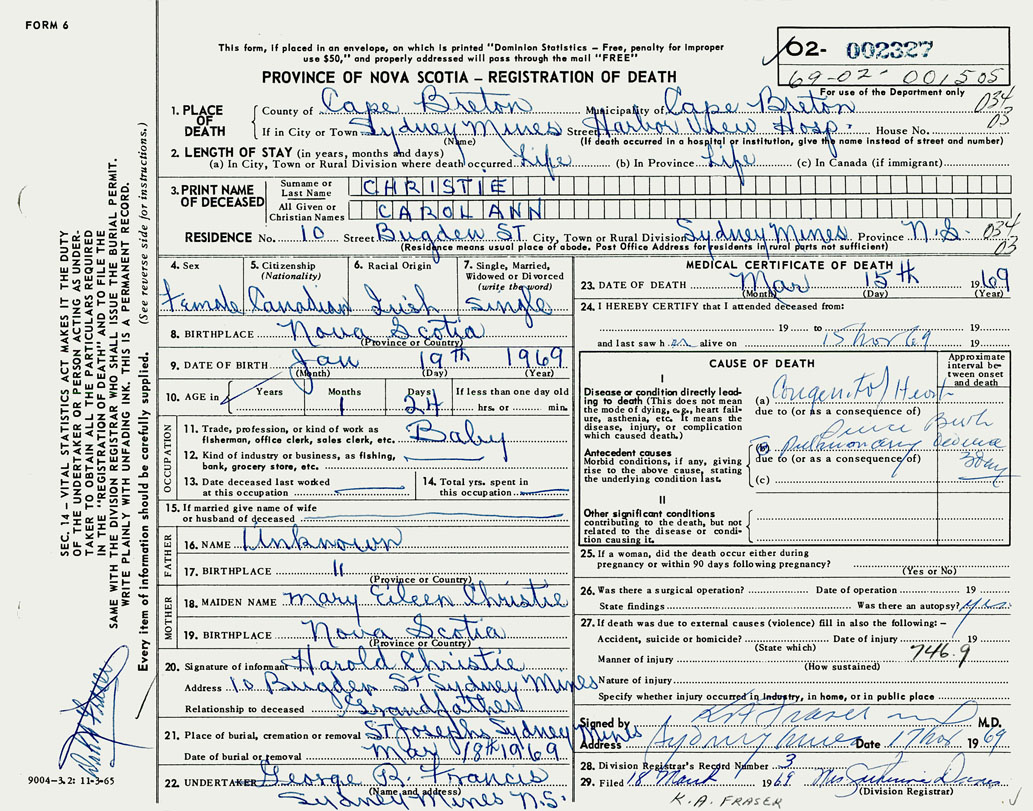 FORM 6
This form, if placed in an envelope, on which is printed "Dominion Statistics – Free, penalty for improper
use $50," and properly addressed will pass through the mail "FREE"
PROVINCE OF NOVA SCOTIA – REGISTRATION OF DEATH
O2- 002327
69-02- 001505
For use of the Department only
034
03
1. PLACE OF DEATH
County of Cape Breton Municipality of Cape Breton
If in City or Town Sydney Mines Street Harbor View Hosp. House No.
(Name) (If death occurred in a hospital or institution, give the name instead of street and number)
2. LENGTH OF STAY (in years, months and days)
(a) In City, Town or Rural Division where death occurred Life (b) In Province Life (c) In Canada (if immigrant)
3. PRINT NAME OF DECEASED
Surname or Last Name CHRISTIE
All Given or Christian Names CAROL ANN
RESIDENCE No. 10 Street Bugden ST City, Town or Rural Division Sydney Mines Province N.S. 034
03
(Residence means usual place of abode. Post Office Address for residents in rural parts not sufficient)
4. Sex Female
5. Citizenship (Nationality) Canadian
6. Racial Origin Irish
7. Single, Married, Widowed or Divorced (write the word) Single
8. BIRTHPLACE Nova Scotia
(Province or Country)
9. DATE OF BIRTH Jan 19th 1969
(Month) (Day) (Year)
10. AGE in Years Months 1 Days 24 If less than one day old hrs. or min.
OCCUPATION
11. Trade, profession, or kind of work as fisherman, office clerk, sales clerk, etc. Baby
12. Kind of industry or business, as fishing, bank, grocery store, etc.
13. Date deceased last worked at this occupation
14. Total yrs. spent in this occupation
15. If married give name of wife or husband of deceased
FATHER
16. NAME Unknown
17. BIRTHPLACE "
(Province or Country)
MOTHER
18. MAIDEN NAME Mary Eileen Christie
19. BIRTHPLACE Nova Scotia
(Province or Country)
20. Signature of informant Harold Christie
Address 10 Bugden St Sydney Mines
Relationship to deceased Grandfather
21. Place of burial, cremation or removal St Josephs Sydney Mines
Date of burial or removal Mar 18th 1969
22. UNDERTAKER George R. Francis
(Name and address)
Sydney Mines N.S.
MEDICAL CERTIFICATE OF DEATH
23. DATE OF DEATH Mar 15th 1969
(Month) (Day) (Year)
24. I HEREBY CERTIFY that I attended deceased from:
19 to 19
and last saw h er alive on 15 Mar 69 19
CAUSE OF DEATH
Approximate interval between onset and death
I
Disease or condition directly leading to death (This does not mean the mode of dying, e.g., heart failure, asthenia, etc. It means the disease, injury, or complication which caused death.)
(a) Congenital Heart
due to (or as a consequence of)
Since Birth
Antecedent causes
Morbid conditions, if any, giving rise to the above cause, stating the underlying condition last.
(b) Pulmonary Oedema
due to (or as a consequence of)
3 day
(c)
II
Other significant conditions
contributing to the death, but not related to the disease or condition causing it.
25. If a woman, did the death occur either during pregnancy or within 90 days following pregnancy?
(Yes or No)
26. Was there a surgical operation? Date of operation 19
State findings Was there an autopsy? yes
27. If death was due to external causes (violence) fill in also the following: –
Accident, suicide or homicide? Date of injury 19
(State which) 746.9
Manner of injury
(How sustained)
Nature of injury
Specify whether injury occurred in industry, in home, or in public place
Signed by K A Fraser M.D.
Address Sydney Mines Date 17 Mar 1969
28. Division Registrar's Record Number 3
29. Filed 18 March 1969 Mrs
(Division Registrar)
K. A. FRASER
SEC. 14 – VITAL STATISTICS ACT MAKES IT THE DUTY
OF THE UNDERTAKER OR PERSON ACTING AS UNDER-
TAKER TO OBTAIN ALL THE PARTICULARS REQUIRED
IN THE "REGISTRATION OF DEATH" AND TO FILE THE
SAME WITH THE DIVISION REGISTRAR WHO SHALL ISSUE THE BURIAL PERMIT.
WRITE PLAINLY WITH UNFADING INK. THIS IS A PERMANENT RECORD.
Every item of information should be carefully supplied. (See reverse side for instructions.)
Fraser
9004-3.2: 11-3-65